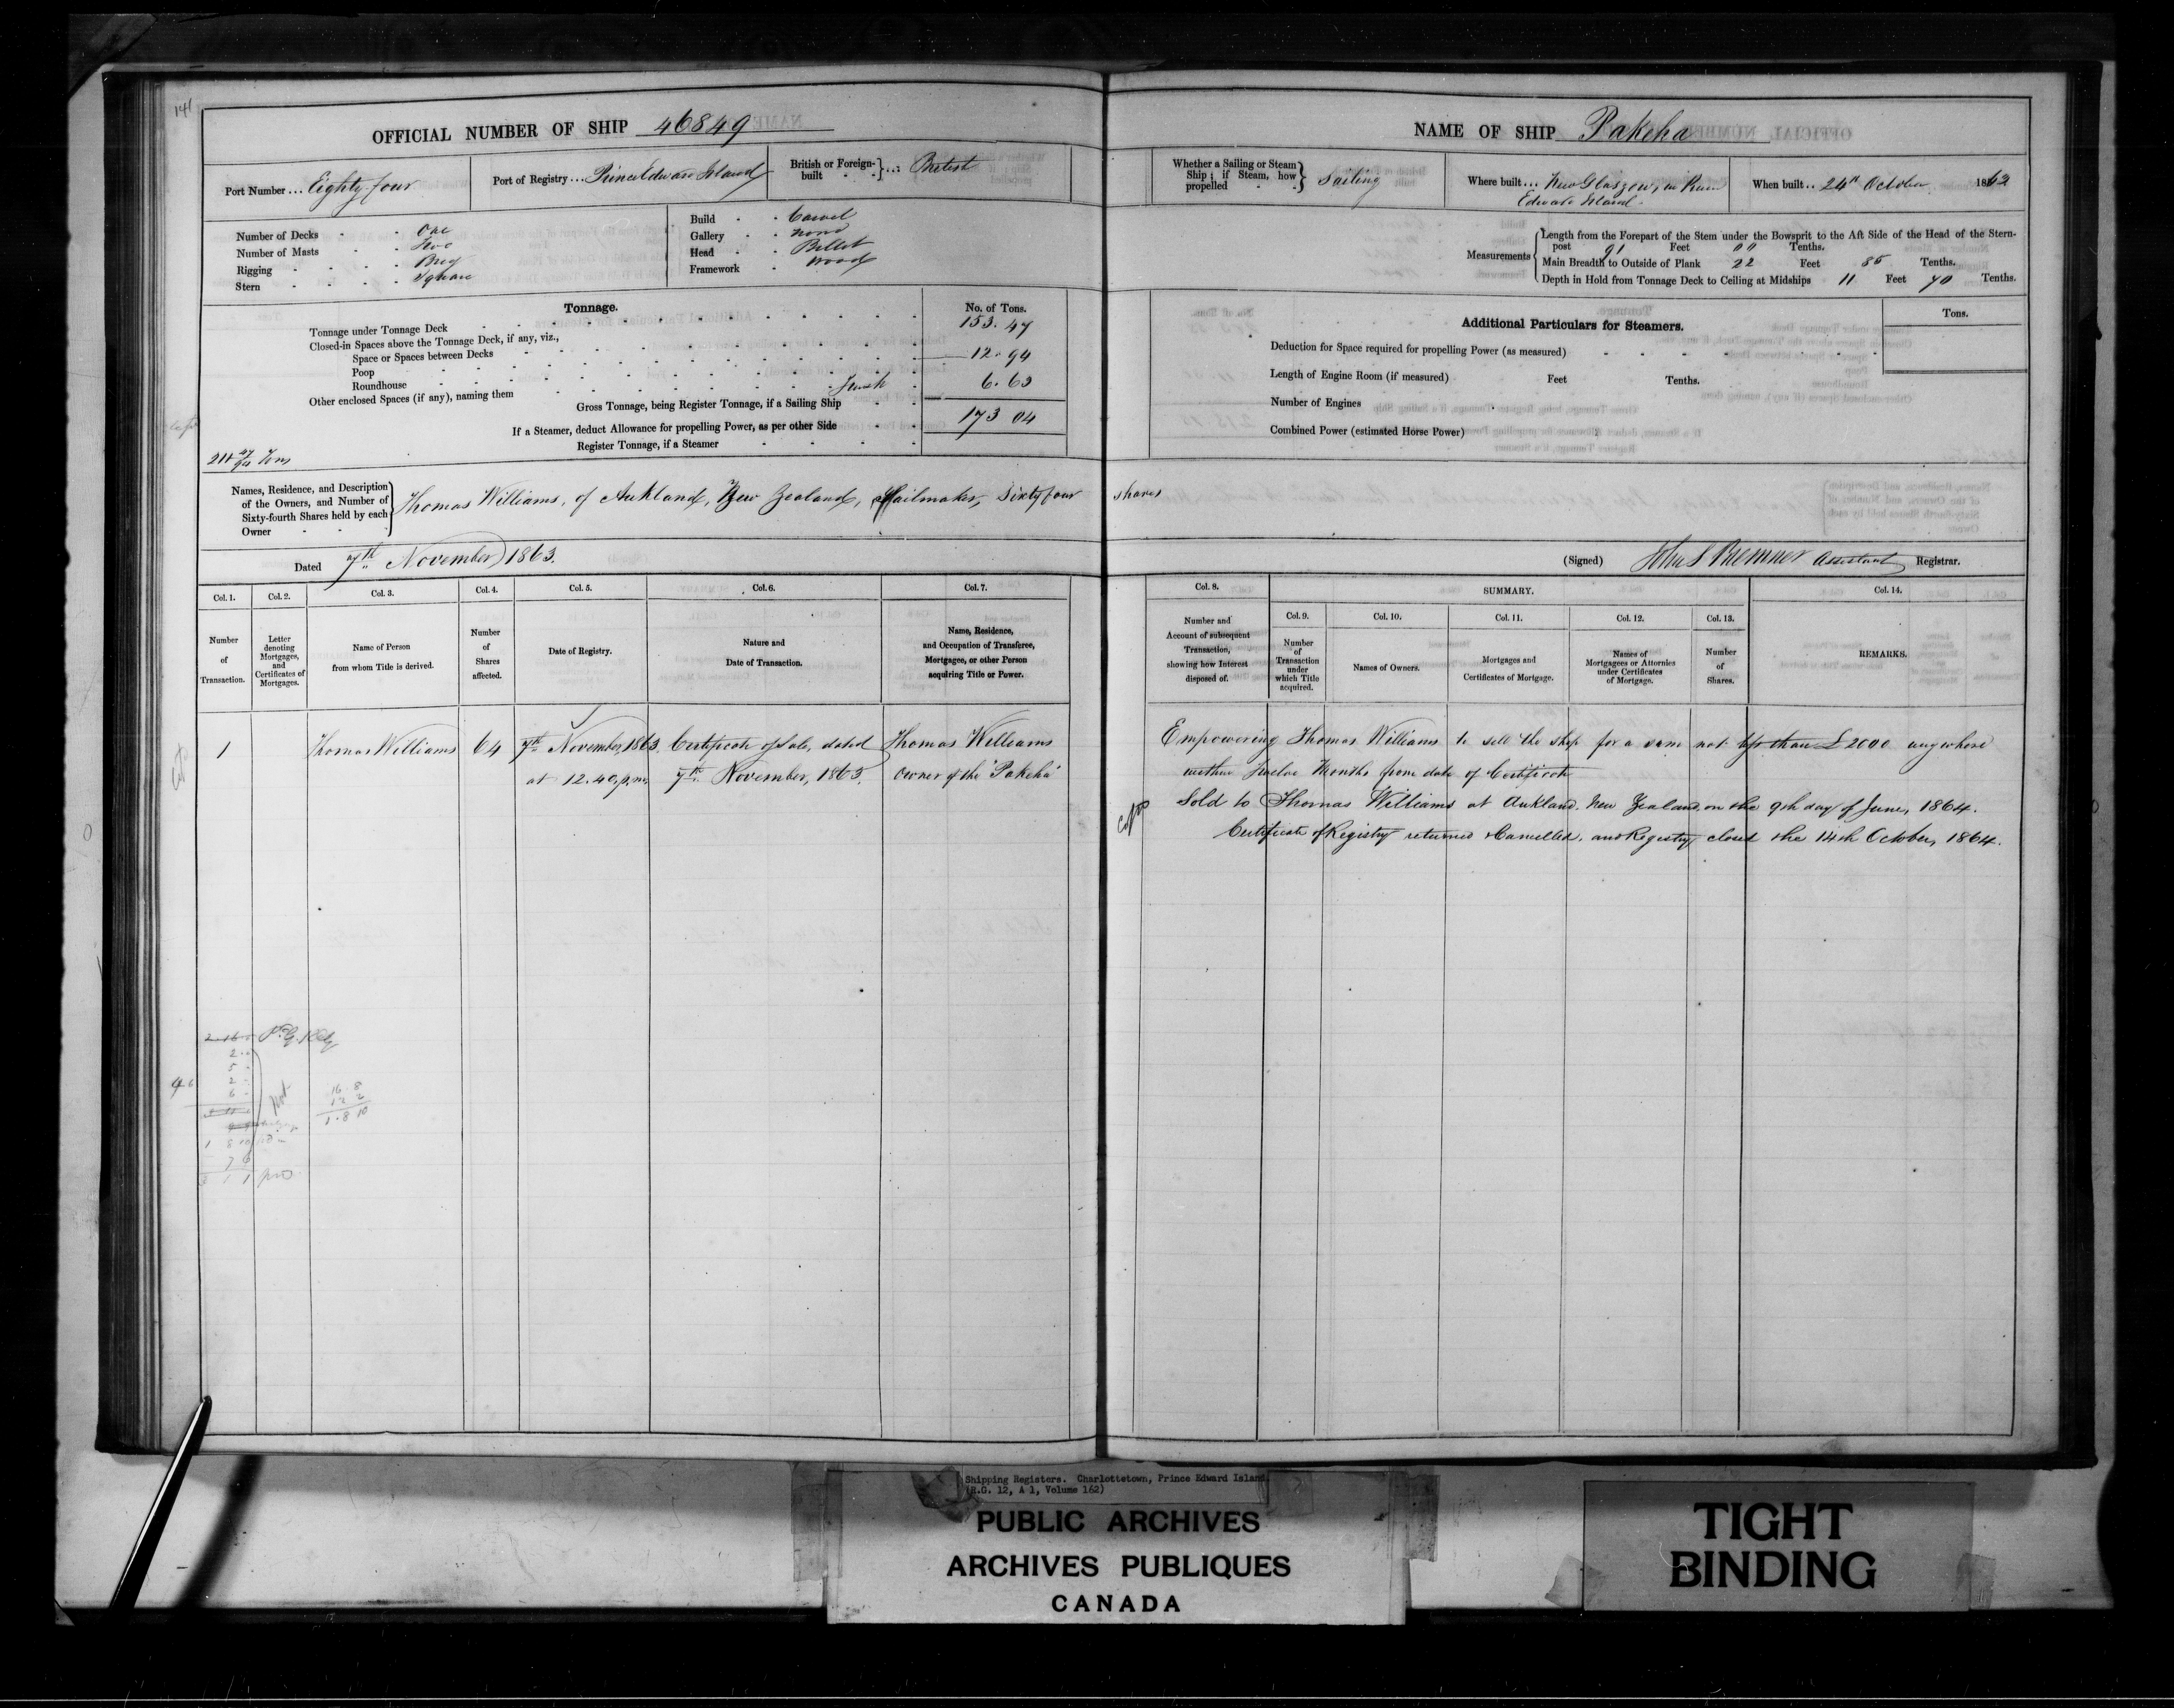 141
OFFICIAL NUMBER OF SHIP 46849
Port Number ... Eighty four
Port of Registry ... Prince Edward Island
British or Foreign-built ... British
Number of Decks - - One
Number of Masts - - Two
Rigging - - - - Brig
Stern - - - - Square
Build - - Carvel
Gallery - - None
Head - - Billet
Framework - Wood
Tonnage.
No. of Tons.
Tonnage under Tonnage Deck 153.47
Closed-in Spaces above the Tonnage Deck, if any, viz.,
Space or Spaces between Decks 12.94
Poop
Roundhouse
Other enclosed Spaces (if any), naming them 6.63
Gross Tonnage, being Register Tonnage, if a Sailing Ship 173 04
If a Steamer, deduct Allowance for propelling Power, as per other Side
Register Tonnage, if a Steamer
Tons
Names, Residence, and Description of the Owners, and Number of Sixty-fourth Shares held by each Owner
Thomas Williams, of Aukland, New Zealand, Sailmaker, Sixty four shares
Dated 7th November 1863.
Col. 1. Col. 2. Col. 3. Col. 4. Col. 5. Col. 6. Col. 7.
Number of Transaction.
Letter denoting Mortgages, and Certificates of Mortgages.
Name of Person from whom Title is derived.
Number of Shares affected.
Date of Registry.
Nature and Date of Transaction.
Name, Residence, and Occupation of Transferee, Mortgagee, or other Person acquiring Title or Power.
1 Thomas Williams 64 7th November, 1863 Certificate of Sale, dated Thomas Williams
at 12.40, p.m. 7th November, 1863. Owner of the "Pakeha"
16 8
12 2
1.8 10
NAME OF SHIP Pakeha
Whether a Sailing or Steam Ship; if Steam, how propelled Sailing
Where built ... New Glasgow, in Prince
Edward Island.
When built .. 24th October 1863
Measurements
Length from the Forepart of the Stem under the Bowsprit to the Aft Side of the Head of the Stern-
post 91 Feet 00 Tenths.
Main Breadth to Outside of Plank 22 Feet 85 Tenths.
Depth in Hold from Tonnage Deck to Ceiling at Midships 11 Feet 70 Tenths.
Additional Particulars for Steamers.
Tons.
Deduction for Space required for propelling Power (as measured)
Length of Engine Room (if measured) Feet Tenths.
Number of Engines
Combined Power (estimated Horse Power)
(Signed) John S Bremner Assistant Registrar.
Col. 8. SUMMARY. Col. 14.
Col. 9. Col. 10. Col. 11. Col. 12. Col. 13.
Number and Account of subsequent Transaction, showing how Interest disposed of.
Number of Transaction under which Title acquired.
Names of Owners.
Mortgages and Certificates of Mortgage.
Names of Mortgagees or Attornies under Certificates of Mortgage.
Number of Shares.
REMARKS.
Empowering Thomas Williams to sell the ship for a sum not less than £2000 any where
within Twelve Months from date of Certificate
Sold to Thomas Williams at Aukland. New Zealand, on the 9th day of June, 1864.
Certificate of Registry returned & Cancelled, and Registry closed the 14th October, 1864.
Shipping Registers. Charlottetown, Prince Edward Island.
(R.G. 12, A 1, Volume 162)
PUBLIC ARCHIVES
ARCHIVES PUBLIQUES
CANADA
TIGHT
BINDING